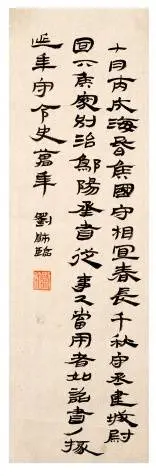 十月丙戌海昏侯國守相宜春長千秋守丞建城尉
侯家別治鄡陽丞書從事當用者如詔書掾
延年守令史萬年
劉臨